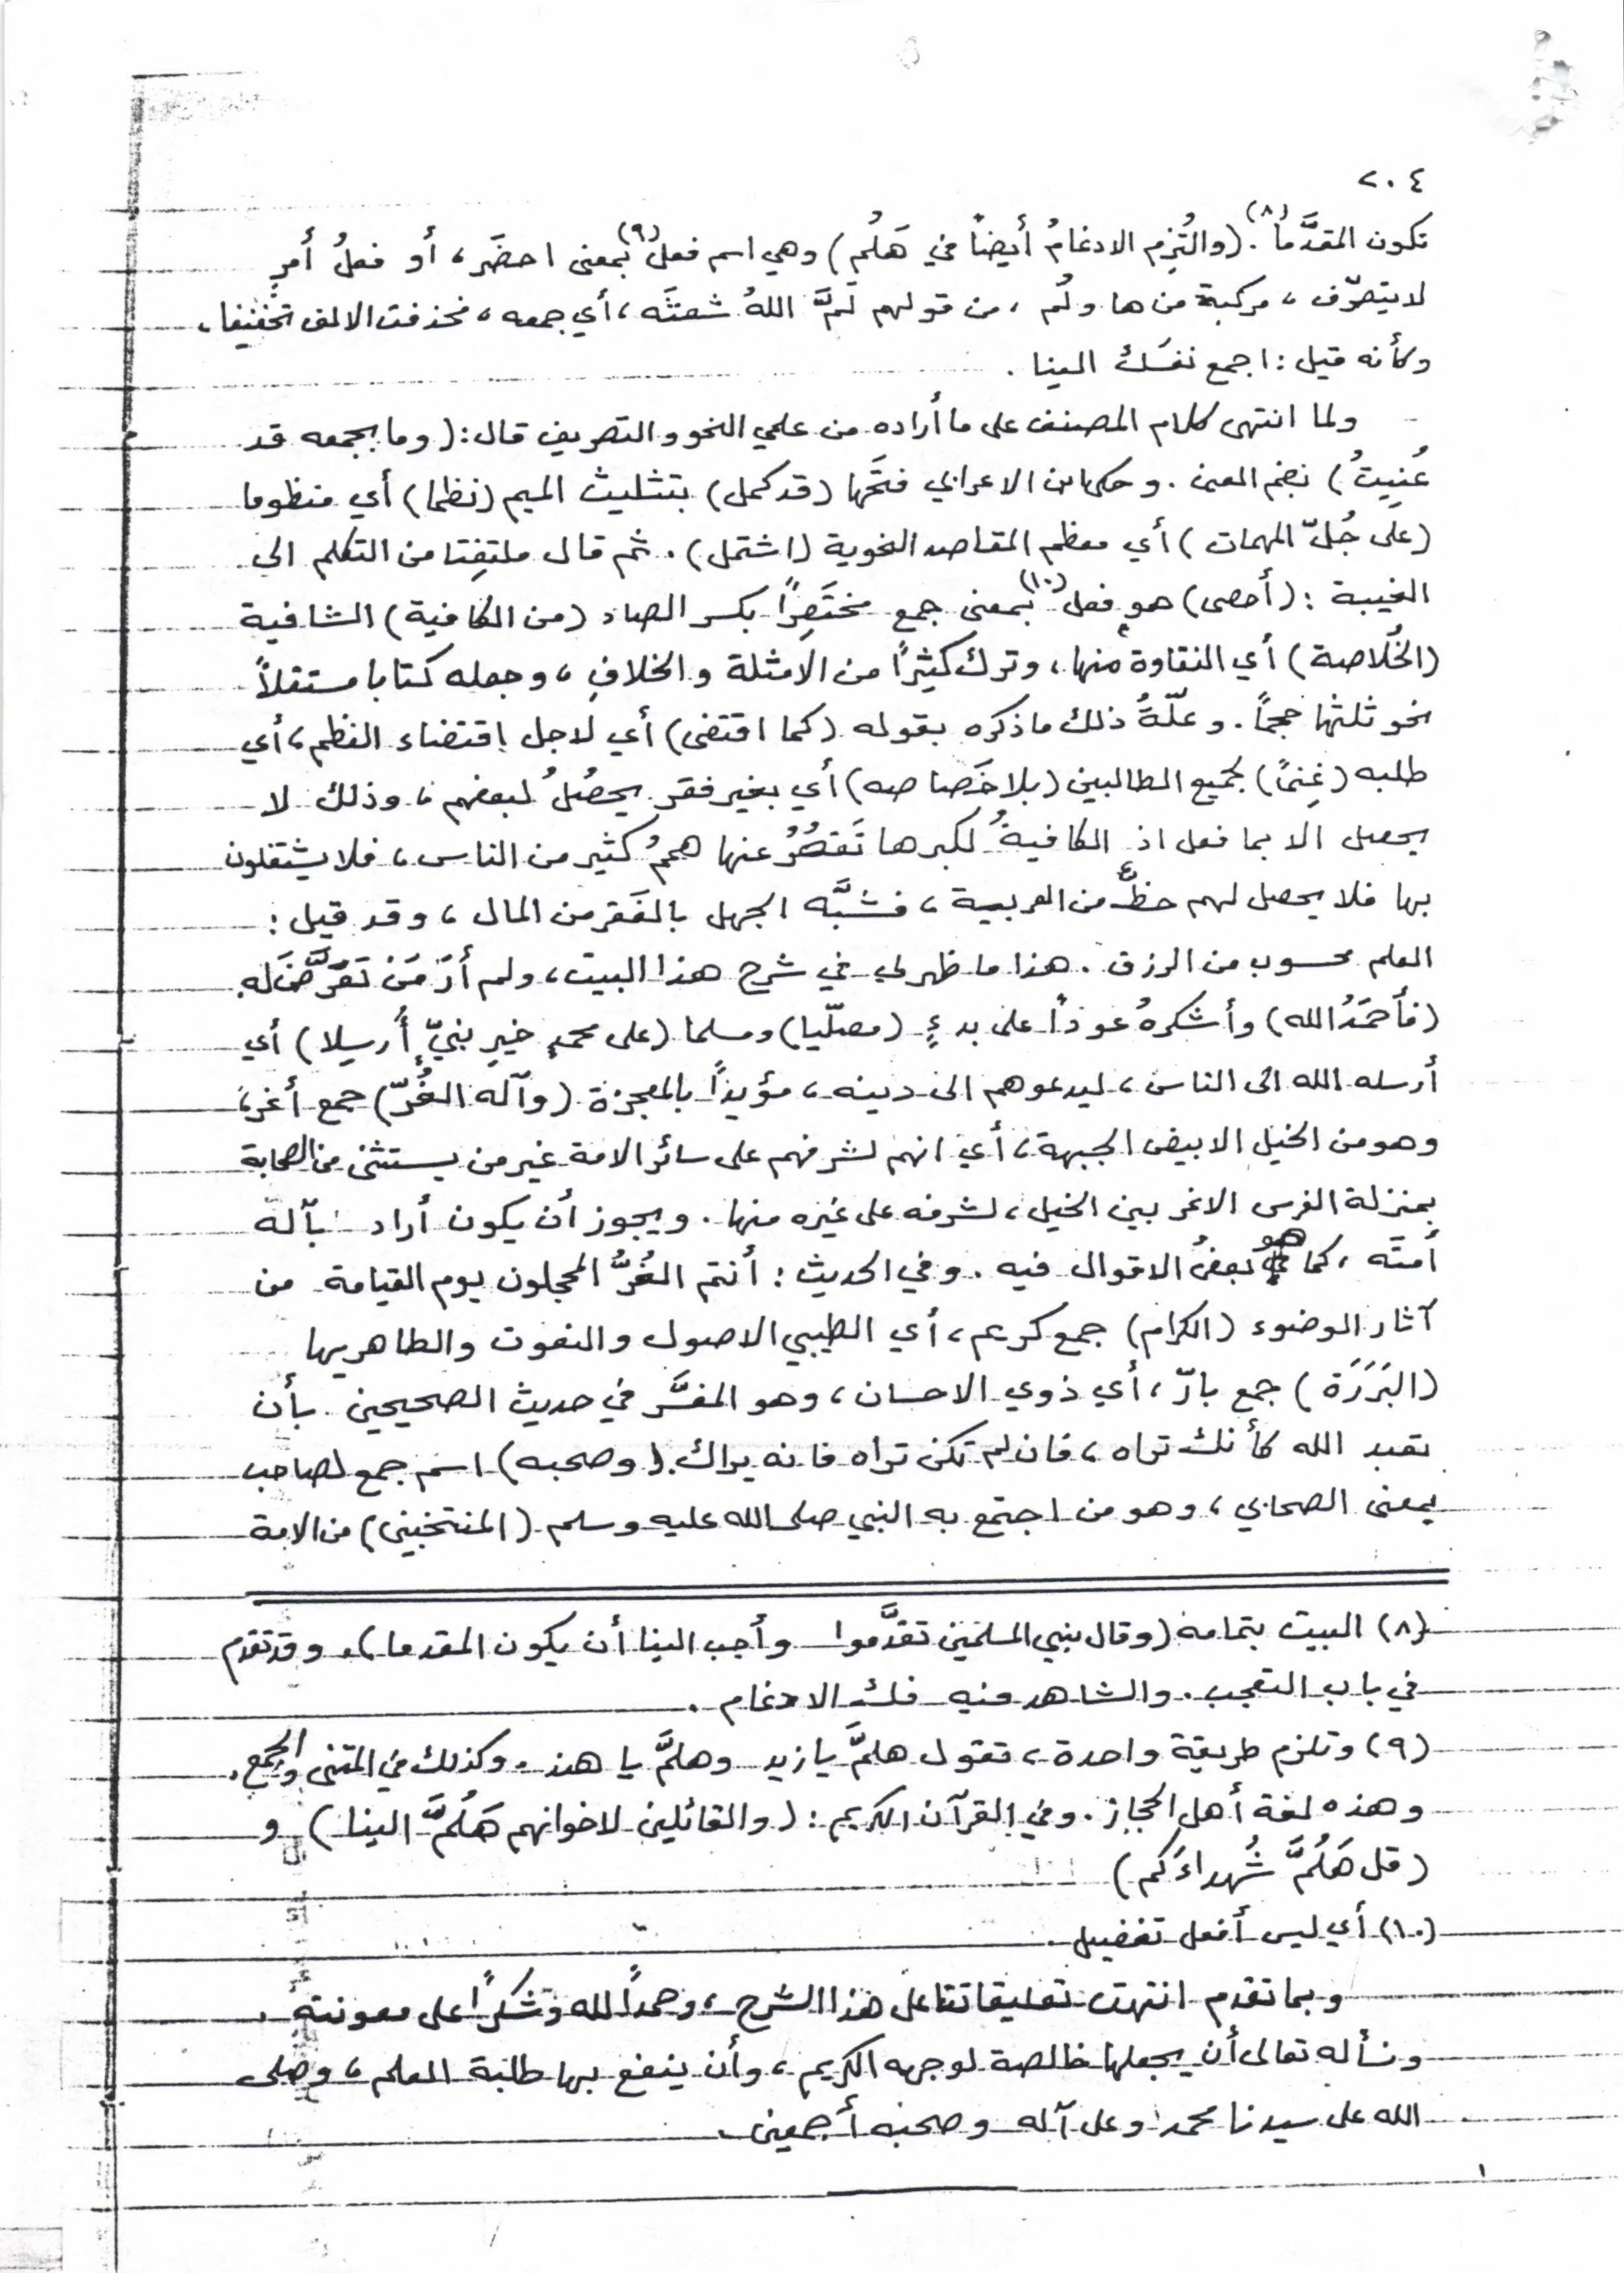 ٢٠٤
تكون المقدَّما(٨). (والتُزِم الادغامُ أيضاً في هَلُم) وهي اسم فعل(٩) بمعنى احضَر، أو فعلُ أمرٍ
لا يتصرّف، مركبة من ها ولُم، من قولهم لَمَّ اللهُ شعثَه، أي جمعه، فحذفت الالف تخفيفا،
وكأنه قيل: اجمع نفسَك الينا.
ولما انتهى كلام المصنف على ما أراده من علمي النحو والتصريف قال: (وما بجمعه قد
عُنِيتُ) بضم العين. وحكى ابن الاعرابي فتحَها (قد كمل) بتثليث الميم (نظما) أي منظوما
(على جُلّ المهمات) أي معظم المقاصد النحوية (اشتمل). ثم قال ملتفِتا من التكلم الى
الغيبة: (أحصى) هو فعل(١٠) بمعنى جمع مختَصِراً بكسر الصاد (من الكافية) الشافية
(الخُلاصة) أي النقاوة منها، وترك كثيراً من الامثلة والخلافِ، وجعله كتابا مستقلاً
نحو ثلثها حجماً. وعلّةُ ذلك ما ذكره بقوله (كما اقتضى) أي لاجل اقتضاء النظم، أي
طلبه (غِنىً) لجميع الطالبين (بلا خَصاصه) أي بغير فقر يحصُلُ لبعضهم، وذلك لا
يحصل الا بما فعل اذ الكافيةُ لكبرها تَقصُرُ عنها هممُ كثير من الناس، فلا يشتغلون
بها فلا يحصل لهم حظٌ من العربية، فشبَّه الجهل بالفَقر من المال، وقد قيل:
العلم محسوب من الرزق. هذا ما ظهر لي في شرح هذا البيت، ولم أرَ مَن تَعَرَّضَ له.
(فأحمَدُ الله) وأشكرهُ عوداً على بدءٍ (مصلّيا) ومسلما (على محمدٍ خيرِ نبيّ أُرسِلا) أي
أرسله الله الى الناس، ليدعوهم الى دينه، مؤيداً بالمعجزة (وآله الغُرّ) جمع أغر،
وهو من الخيل الابيض الجبهة، أي انهم لشرفهم على سائر الامة غير من يستثنى من الصحابة
بمنزلة الفرس الاغر بين الخيل، لشرفه على غيره منها. ويجوز أن يكون أراد بآله
أمتَه، كما هو بعضُ الاقوال فيه. وفي الحديث: أنتم الغُرُّ المحجلون يوم القيامة من
آثار الوضوء (الكرام) جمع كريم، أي الطيبي الاصول والنعوت والطاهريها
(البَرَرَة) جمع بارّ، أي ذوي الاحسان، وهو المفسَّر في حديث الصحيحين بأن
تعبد الله كأنك تراه، فان لم تكن تراه فانه يراك. (وصحبه) اسم جمع لصاحب
بمعنى الصحابي، وهو من اجتمع به النبي صلى الله عليه وسلم (المنتخبين) من الامة
(٨) البيت بتمامه (وقال نبي المسلمين تقدَّموا وأحب الينا أن يكون المقدما). وقد تقدم
في باب التعجب. والشاهد فيه فك الادغام.
(٩) وتلزم طريقة واحدة، تقول هلمَّ يا زيد وهلمَّ يا هند. وكذلك في المثنى والجمع.
وهذه لغة أهل الحجاز. وفي القرآن الكريم: (والقائلين لاخوانهم هَلُمَّ الينا) و
(قل هَلُمَّ شُهداءَكم)
(١٠) أي ليس أفعل تفضيل.
وبما تقدم انتهت تعليقاتنا على هذا الشرح، وحمداً لله وشكراً على معونته.
ونسأله تعالى أن يجعلها خالصة لوجهه الكريم، وأن ينفع بها طلبة العلم، وصلى
الله على سيدنا محمد وعلى آله وصحبه أجمعين.